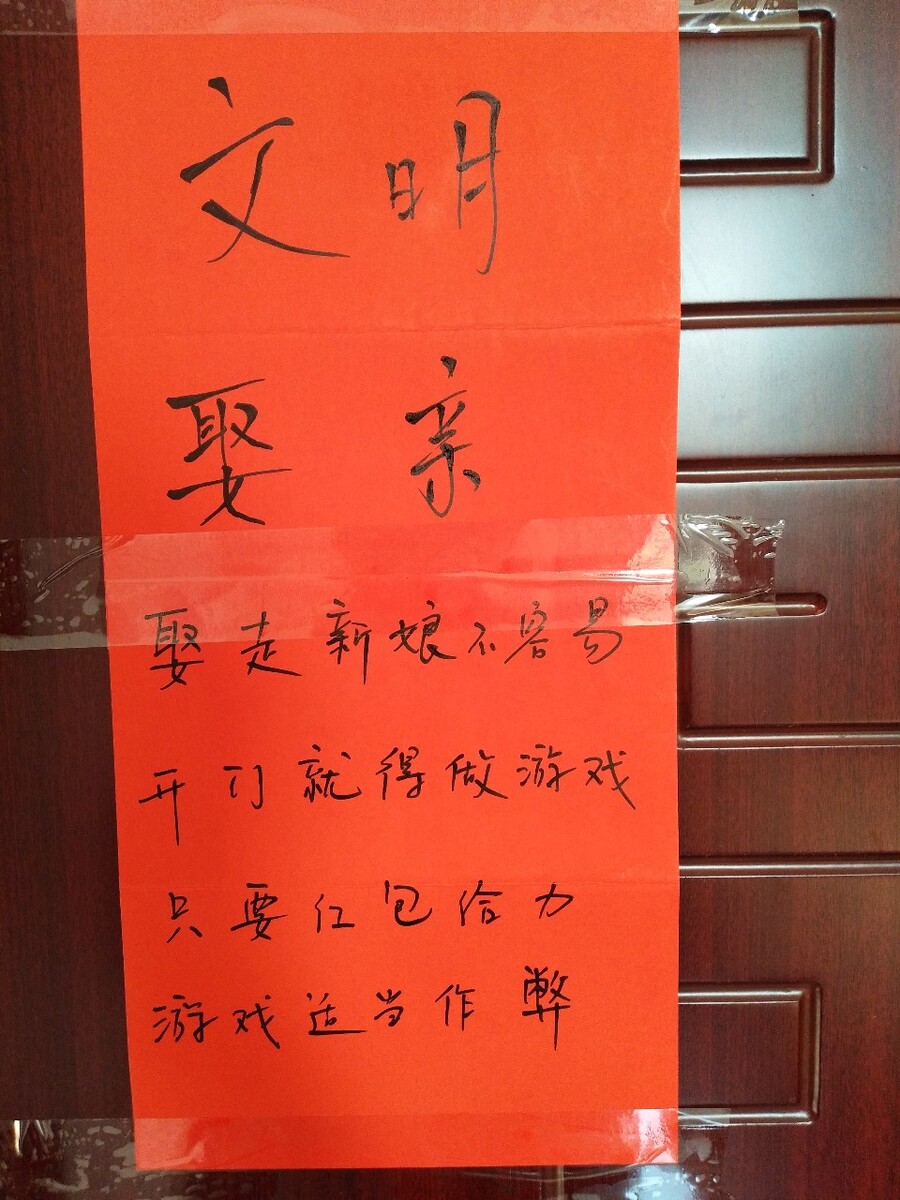 文明
娶亲
娶走新娘不容易
开门就得做游戏
只要红包给力
游戏适当作弊